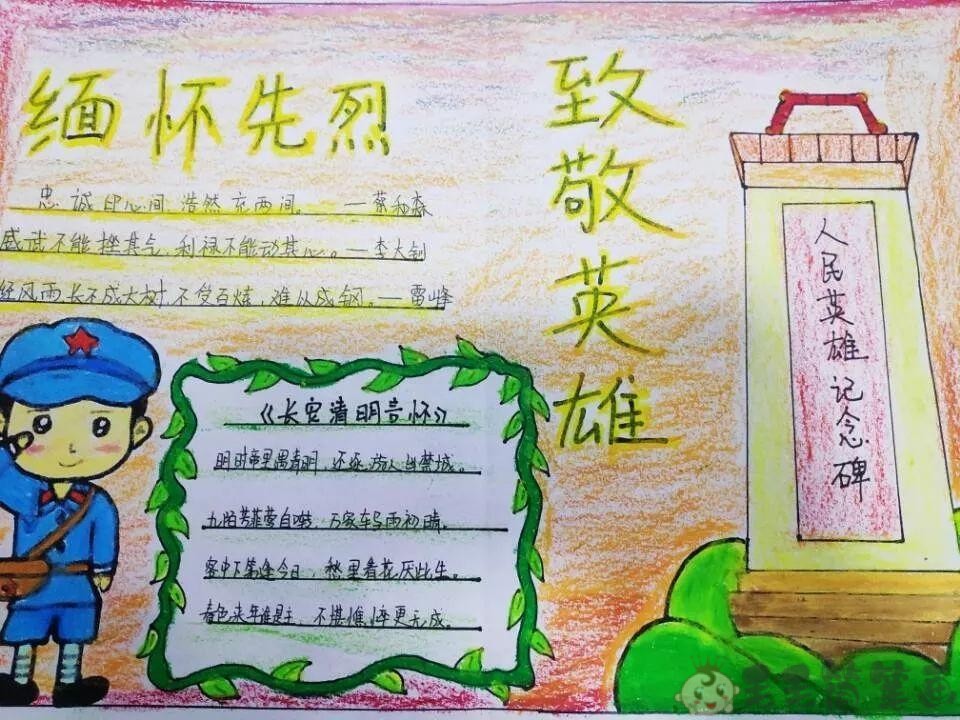 缅怀先烈
忠诚印心间,浩然充两间。——蔡和森
威武不能挫其气,利禄不能动其心。——李大钊
经风雨长不成大树,不受百炼,难以成钢。——雷峰
《长安清明言怀》
明时帝里遇清明,还逐游人出禁城。
九陌芳菲莺自啭,万家车马雨初晴。
客中下第逢今日,愁里看花厌此生。
春色来年谁是主,不堪憔悴更无成。
致敬英雄
人民英雄记念碑